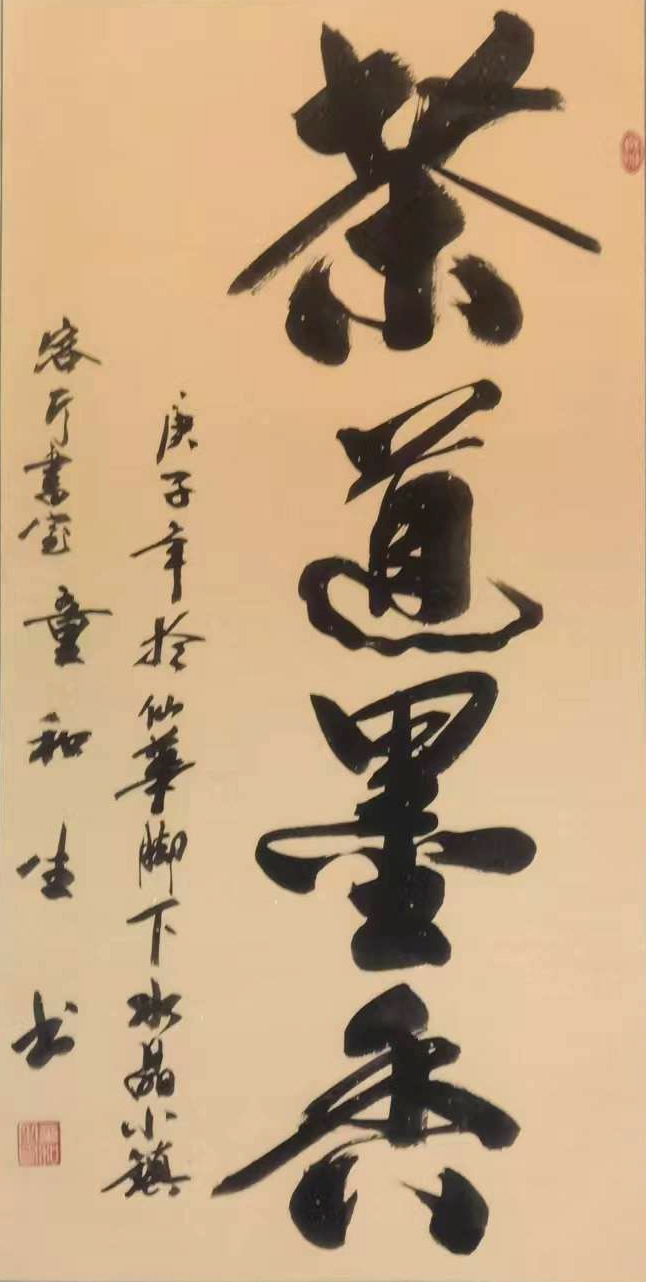 茶道墨香
庚子年於仙華脚下水晶小鎮
客厅書室童和生书